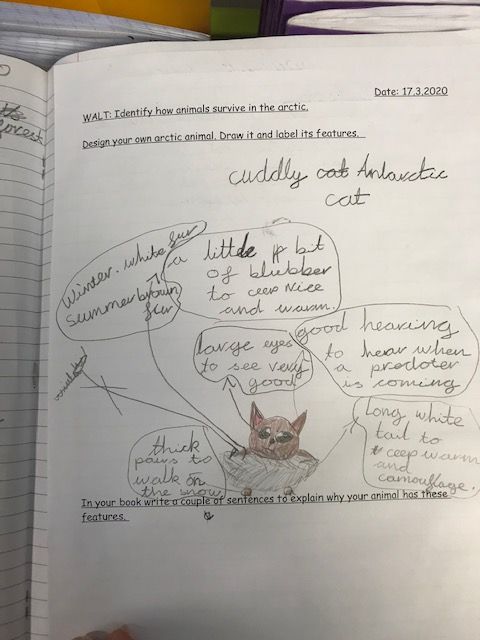 Date: 17.3.2020
WALT: Identify how animals survive in the arctic.
Design your own arctic animal. Draw it and label its features.
cuddly cat Antarctic
cat
Winter. white fur
summer brown
fur
a little bit
of blubber
to ceep nice
and warm.
large eyes
to see very
good
good hearing
to hear when
a predoter
is coming
long white
tail to
ceep warm
and
camouflage.
thick
paws to
walk on
the snow
In your book write a couple of sentences to explain why your animal has these
features.